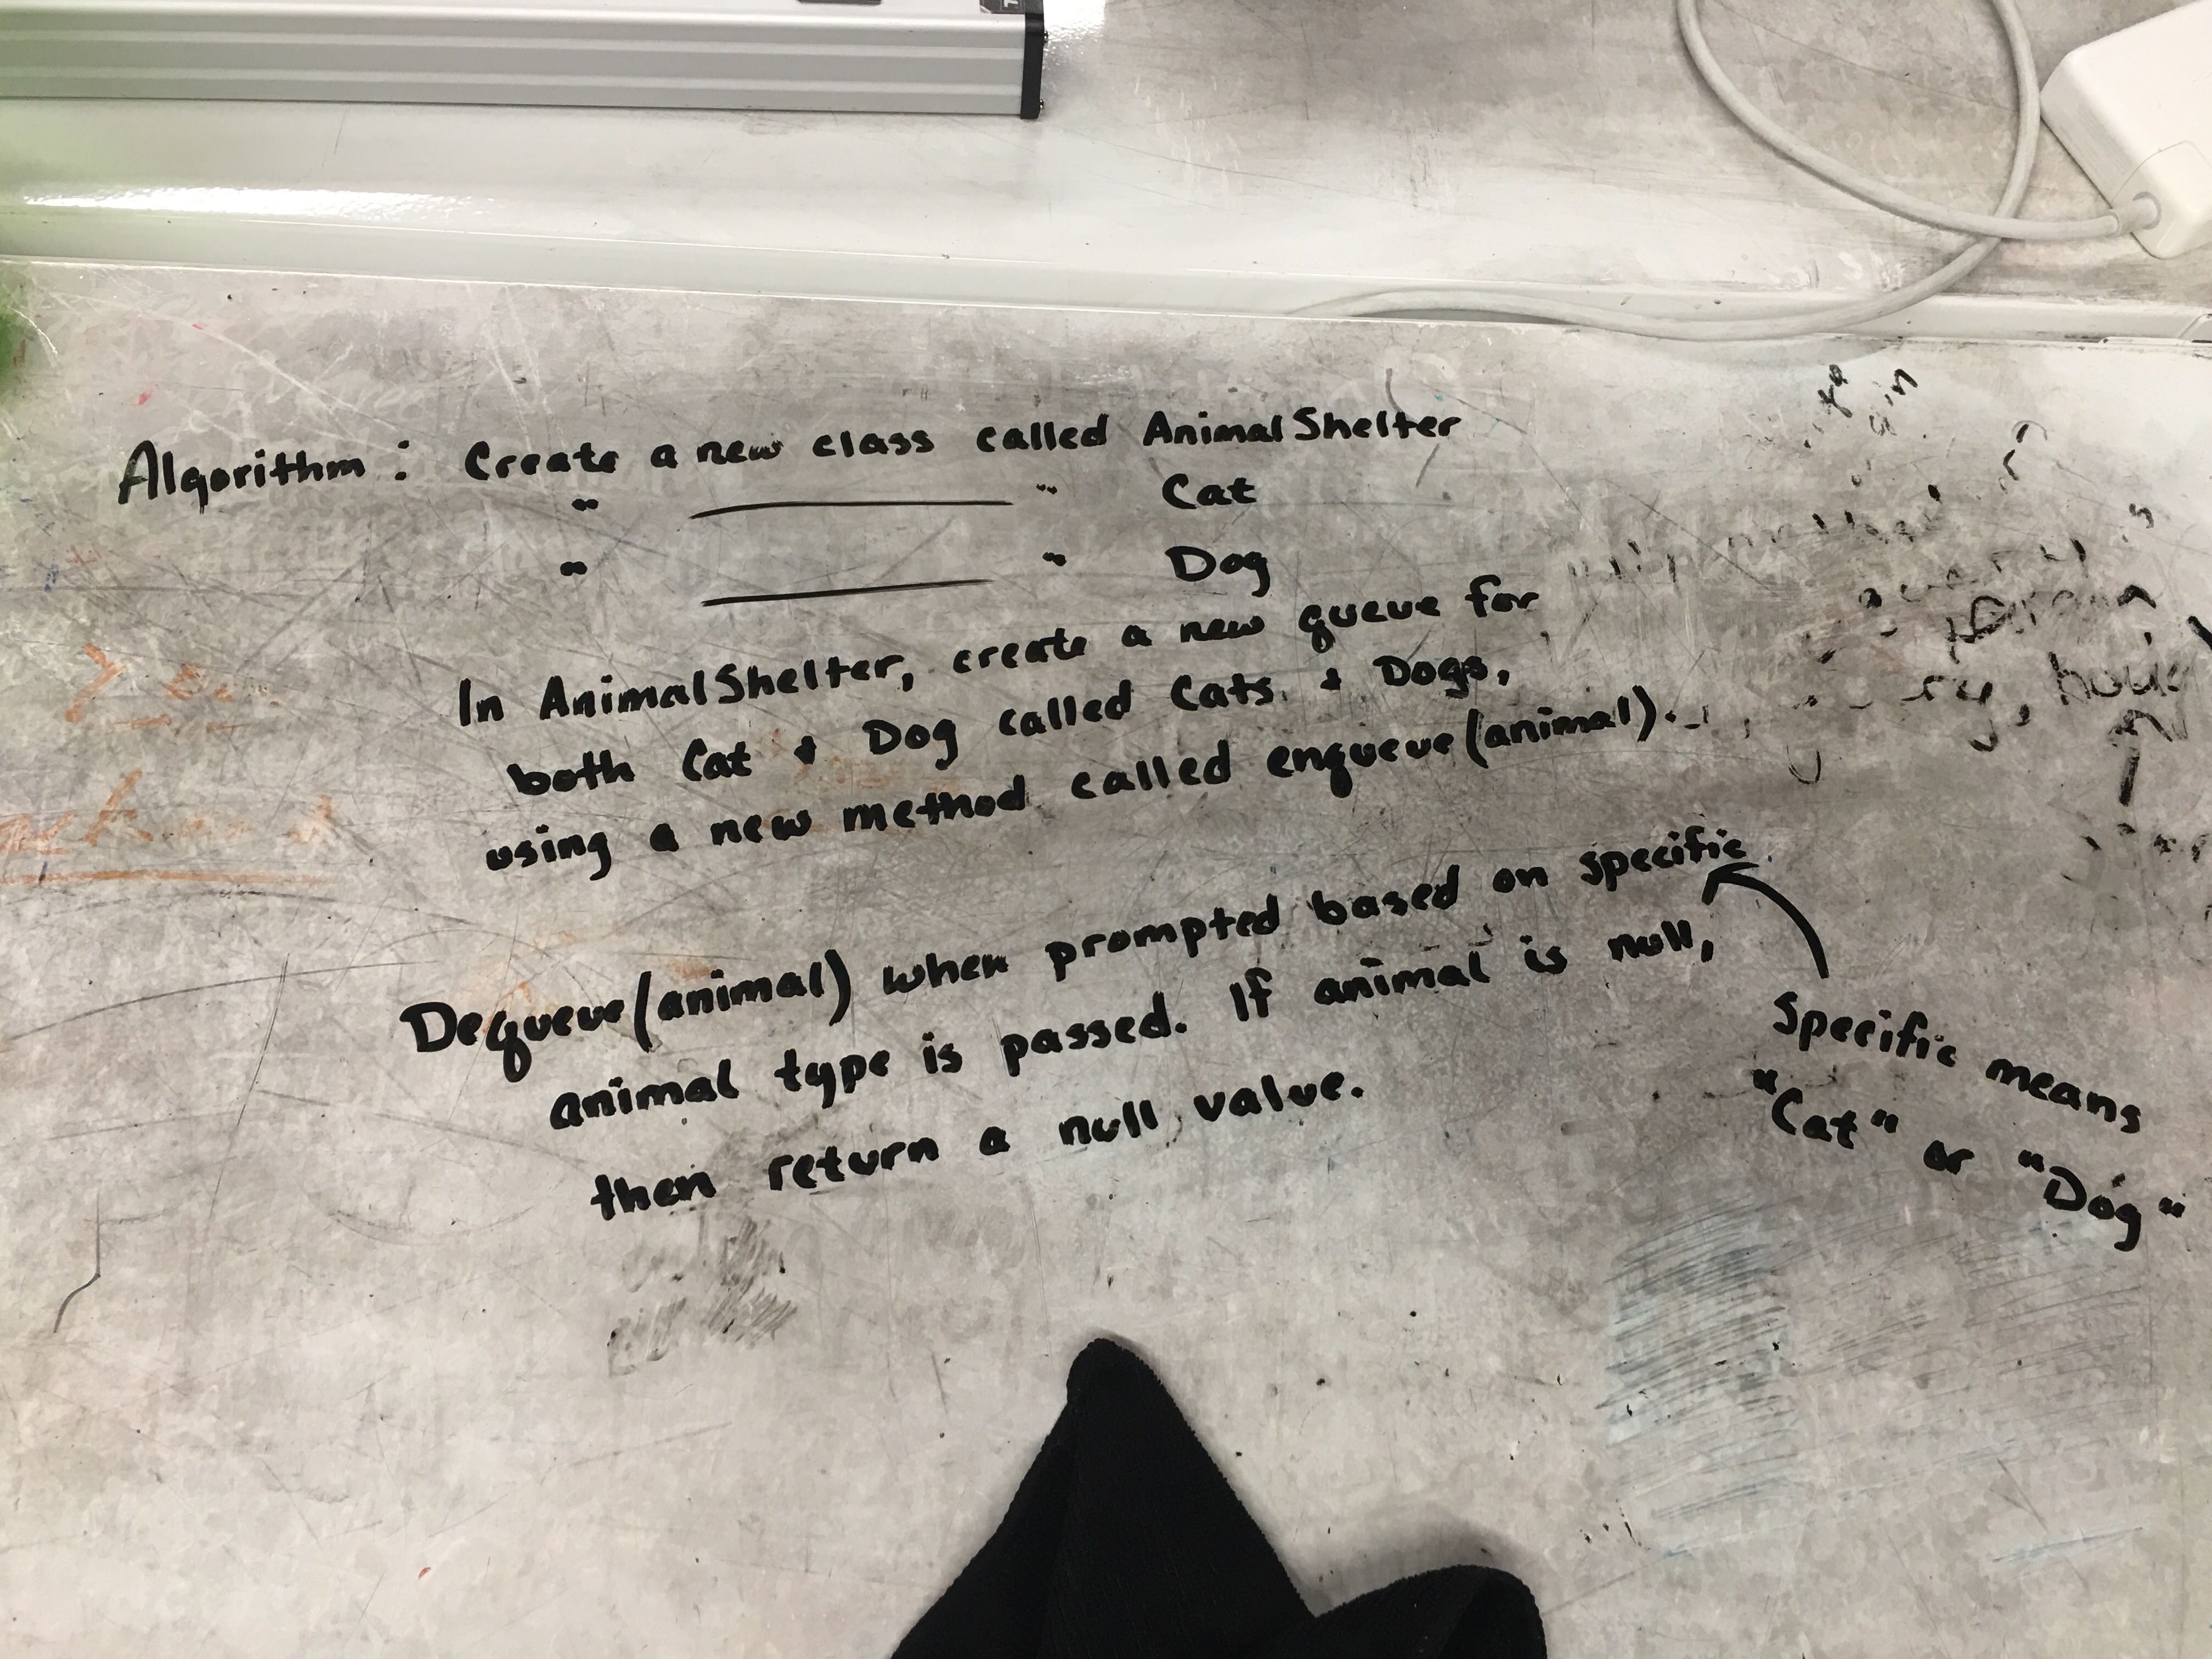 Algorithm: Create a new class called AnimalShelter
" ——— " Cat
" ——— " Dog
In AnimalShelter, create a new queue for
both Cat + Dog called Cats + Dogs,
using a new method called enqueue(animal).
Dequeue(animal) when prompted based on specific
animal type is passed. If animal is null,
then return a null value.
Specific means
"Cat" or "Dog"